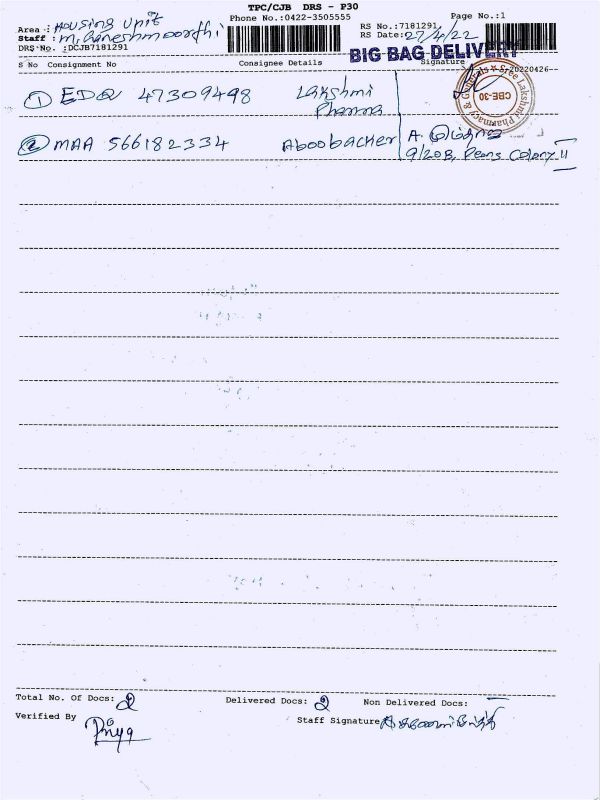 TPC/CJB DRS - P30
Phone No.:0422-3505555
Page No.:1
Area : Housing Unit
RS No.:7181291,
Staff : M. Ganeshmoorthi
RS Date:27/4/22
DRS No. :DCJB7181291
BIG BAG DELIVERY
S No Consignment No Consignee Details Signature
20220426
Sree Lakshmi Pharmacy & Generals
CBE-30
1 EDQ 47309498 Lakshmi
Pharma
2 MAA 566182334 Aboobacker A.
9/20B, Pears Colony II
Total No. Of Docs: 2 Delivered Docs: 2 Non Delivered Docs: —
Verified By Priya
Staff Signature